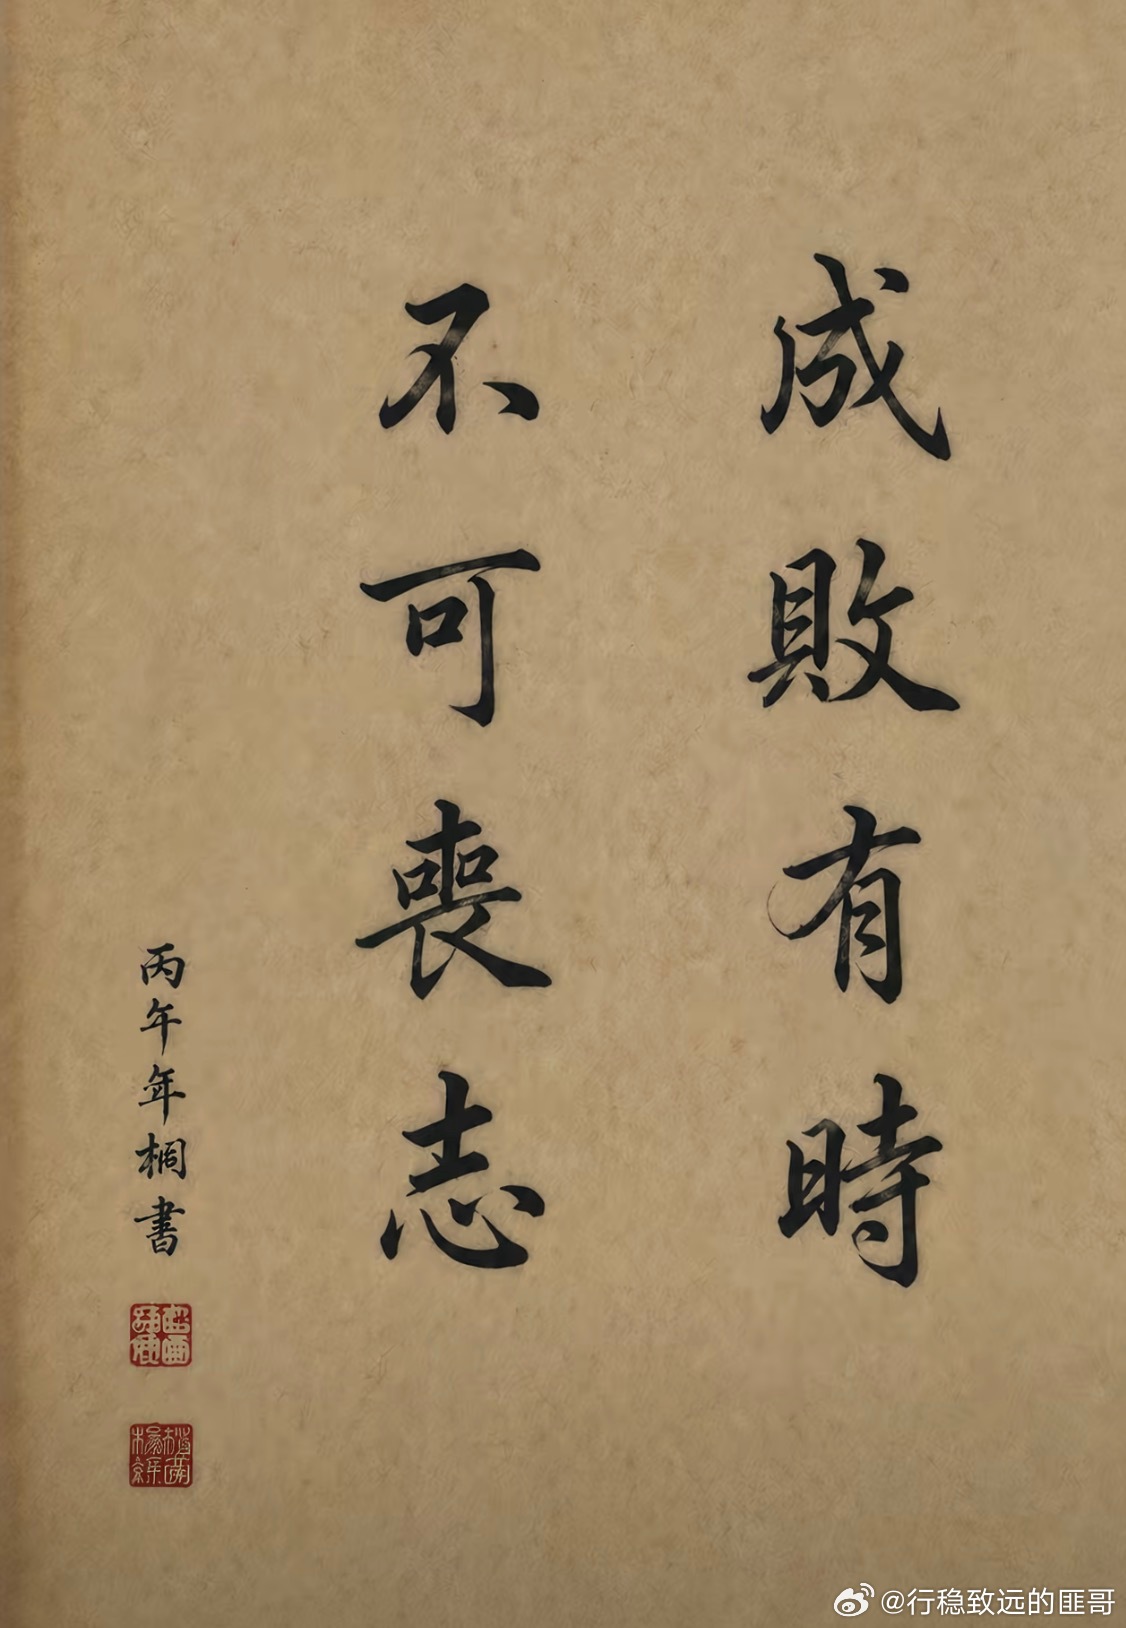 成敗有時
不可喪志
丙午年桐書
@行稳致远的匪哥